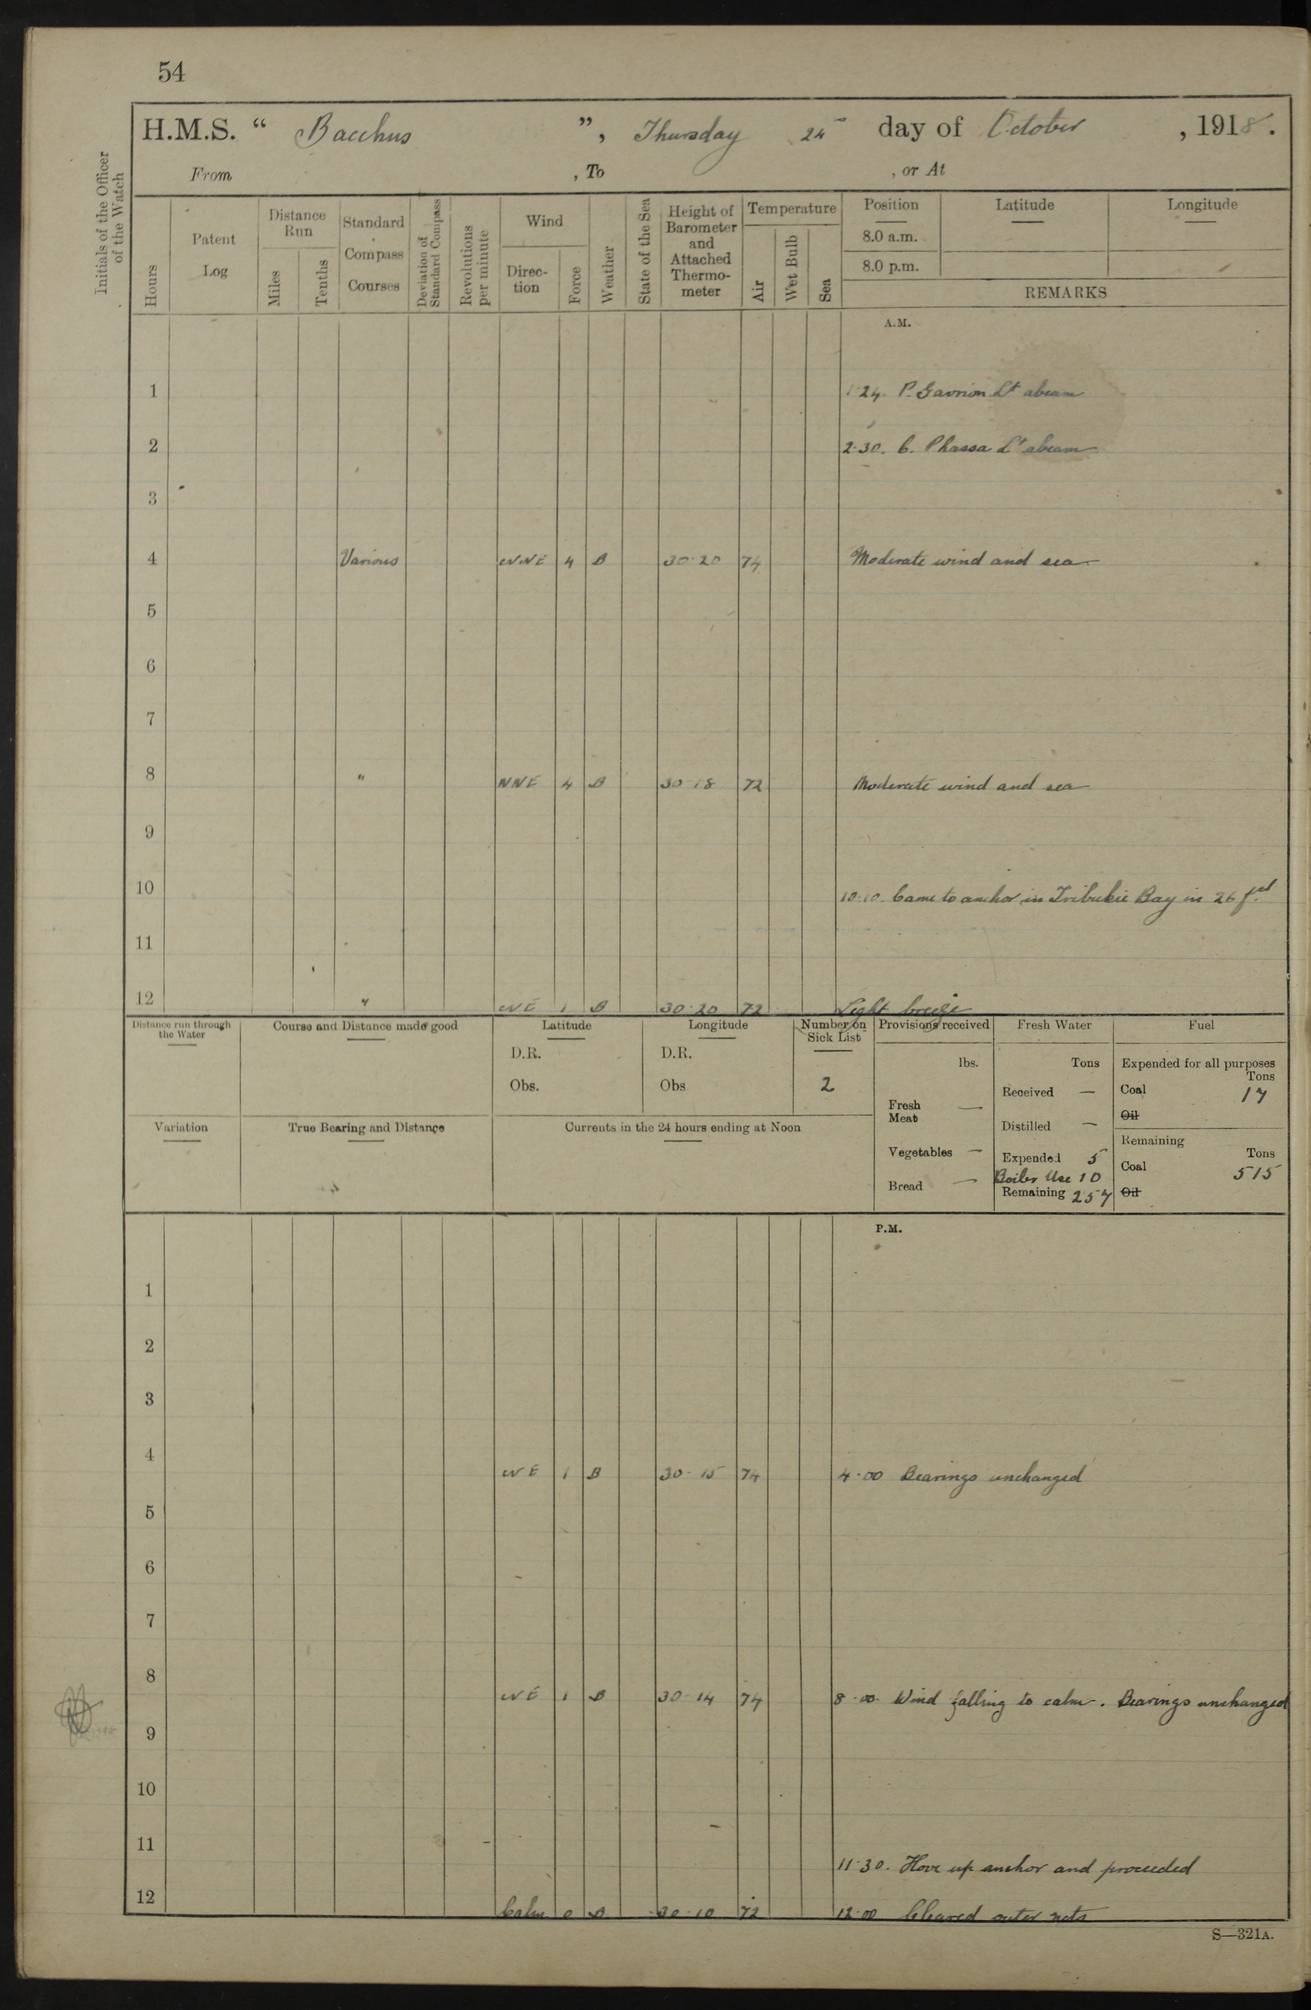 54
H.M.S. “ Bacchus ”, Thursday 24th day of October , 1918.
From , To , or At
Initials of the Officer of the Watch
Hours
Patent Log
Distance Run
Miles
Tenths
Standard Compass Courses
Deviation of Standard Compass
Revolutions per minute
Wind
Direc-tion
Force
Weather
State of the Sea
Height of Barometer and Attached Thermo-meter
Temperature
Air
Wet Bulb
Sea
Position
Latitude
Longitude
8.0 a.m.
8.0 p.m.
REMARKS
A.M.
1 1·24. P. Gavrion Lt abeam
2 2·30. C. Phassa Lt abeam
3
4 Various NNE 4 B 30·20 74 Moderate wind and sea
5
6
7
8 " NNE 4 B 30·18 72 Moderate wind and sea
9
10 10·10. Came to anchor in Tribukie Bay in 26 fms
11
12 " NE 1 B 30·20 72 Light breeze
Distance run through the Water
Course and Distance made good
Latitude
D.R.
Obs.
Longitude
D.R.
Obs
Number on Sick List
2
Provisions received
lbs.
Fresh Meat —
Vegetables —
Bread —
Fresh Water
Tons
Received —
Distilled —
Expended 5
Boiler Use 10
Remaining 257
Fuel
Expended for all purposes
Tons
Coal 17
Oil
Remaining
Tons
Coal 515
Oil
Variation
True Bearing and Distance
Currents in the 24 hours ending at Noon
P.M.
1
2
3
4 NE 1 B 30·15 74 4·00 Bearings unchanged
5
6
7
8 NE 1 B 30·14 74 8·00. Wind falling to calm. Bearings unchanged
9
10
11 11·30. Hove up anchor and proceeded
12 Calm 0 B 30·10 72 12·00 Cleared outer nets
S—321A.